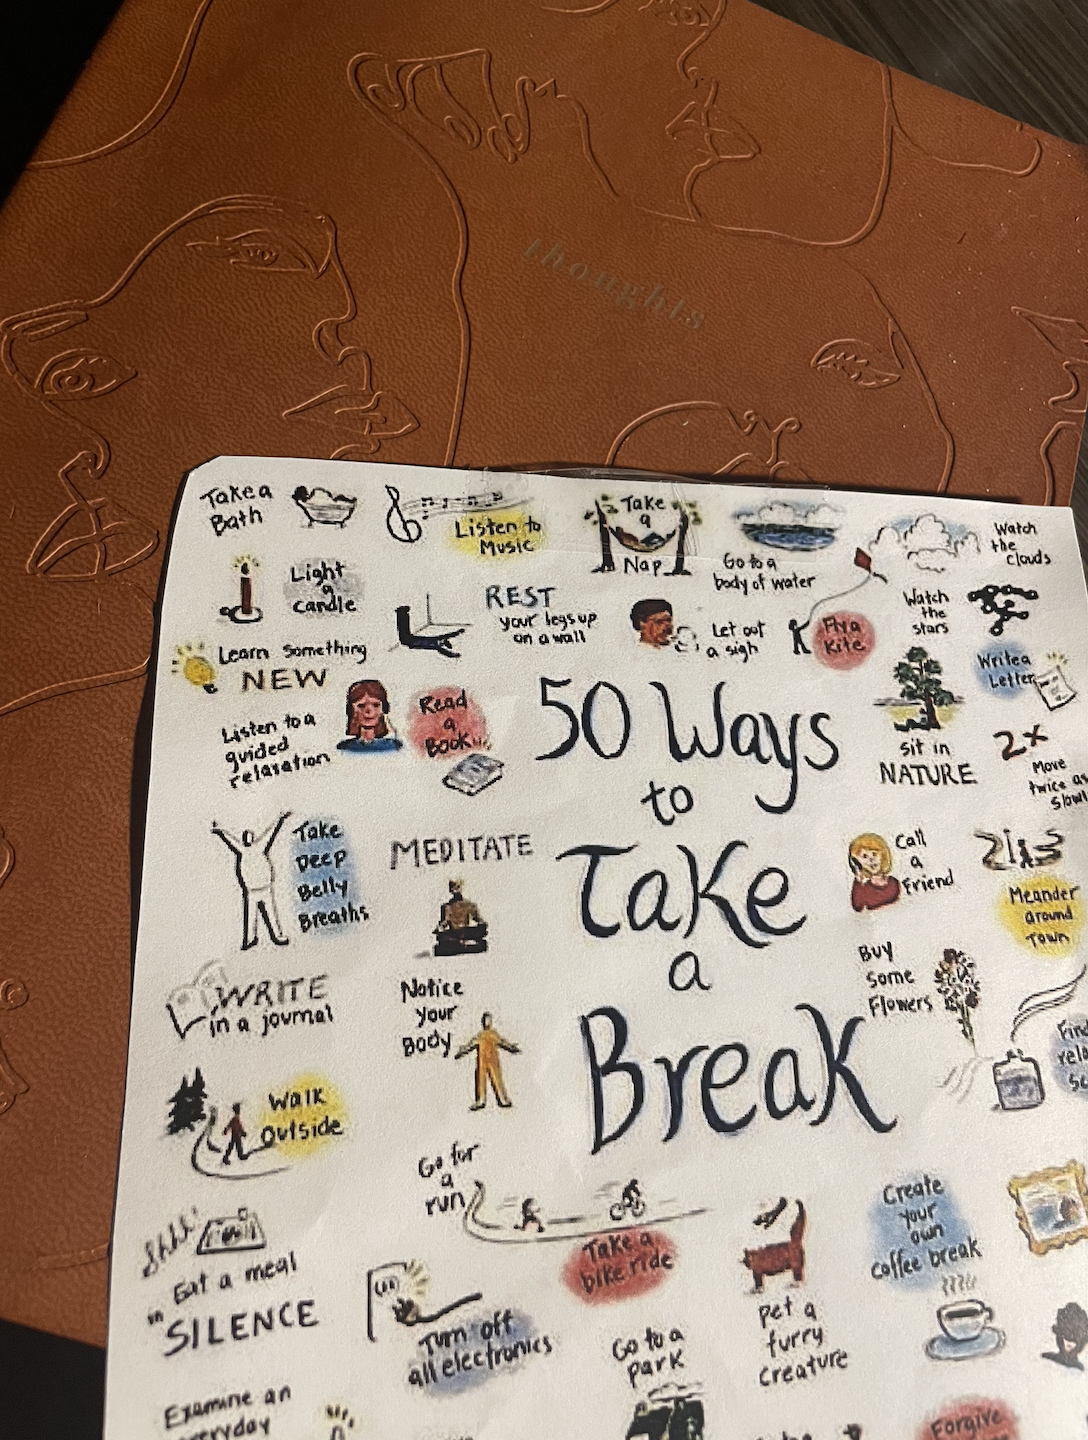 thoughts
Take a
Bath
Listen to
Music
Take
a
Nap
Go to a
body of water
Watch
the
clouds
Light
a
candle
REST
your legs up
on a wall
Let out
a sigh
Fly a
Kite
Watch
the
stars
Write a
Letter
Learn Something
NEW
Listen to a
guided
relaxation
Read
a
Book
50 Ways
to
Take
a
Break
Sit in
NATURE
2x
Move
twice as
Take
Deep
Belly
Breaths
MEDITATE
Call
a
Friend
Meander
around
Town
WRITE
in a journal
Notice
your
Body
Buy
some
Flowers
Walk
Outside
Go for
a
run
Take a
bike ride
Create
your
own
coffee break
Shhh!
Eat a meal
in
SILENCE
Turn off
all electronics
Go to a
park
Pet a
furry
creature
Examine an
everyday
Forgive